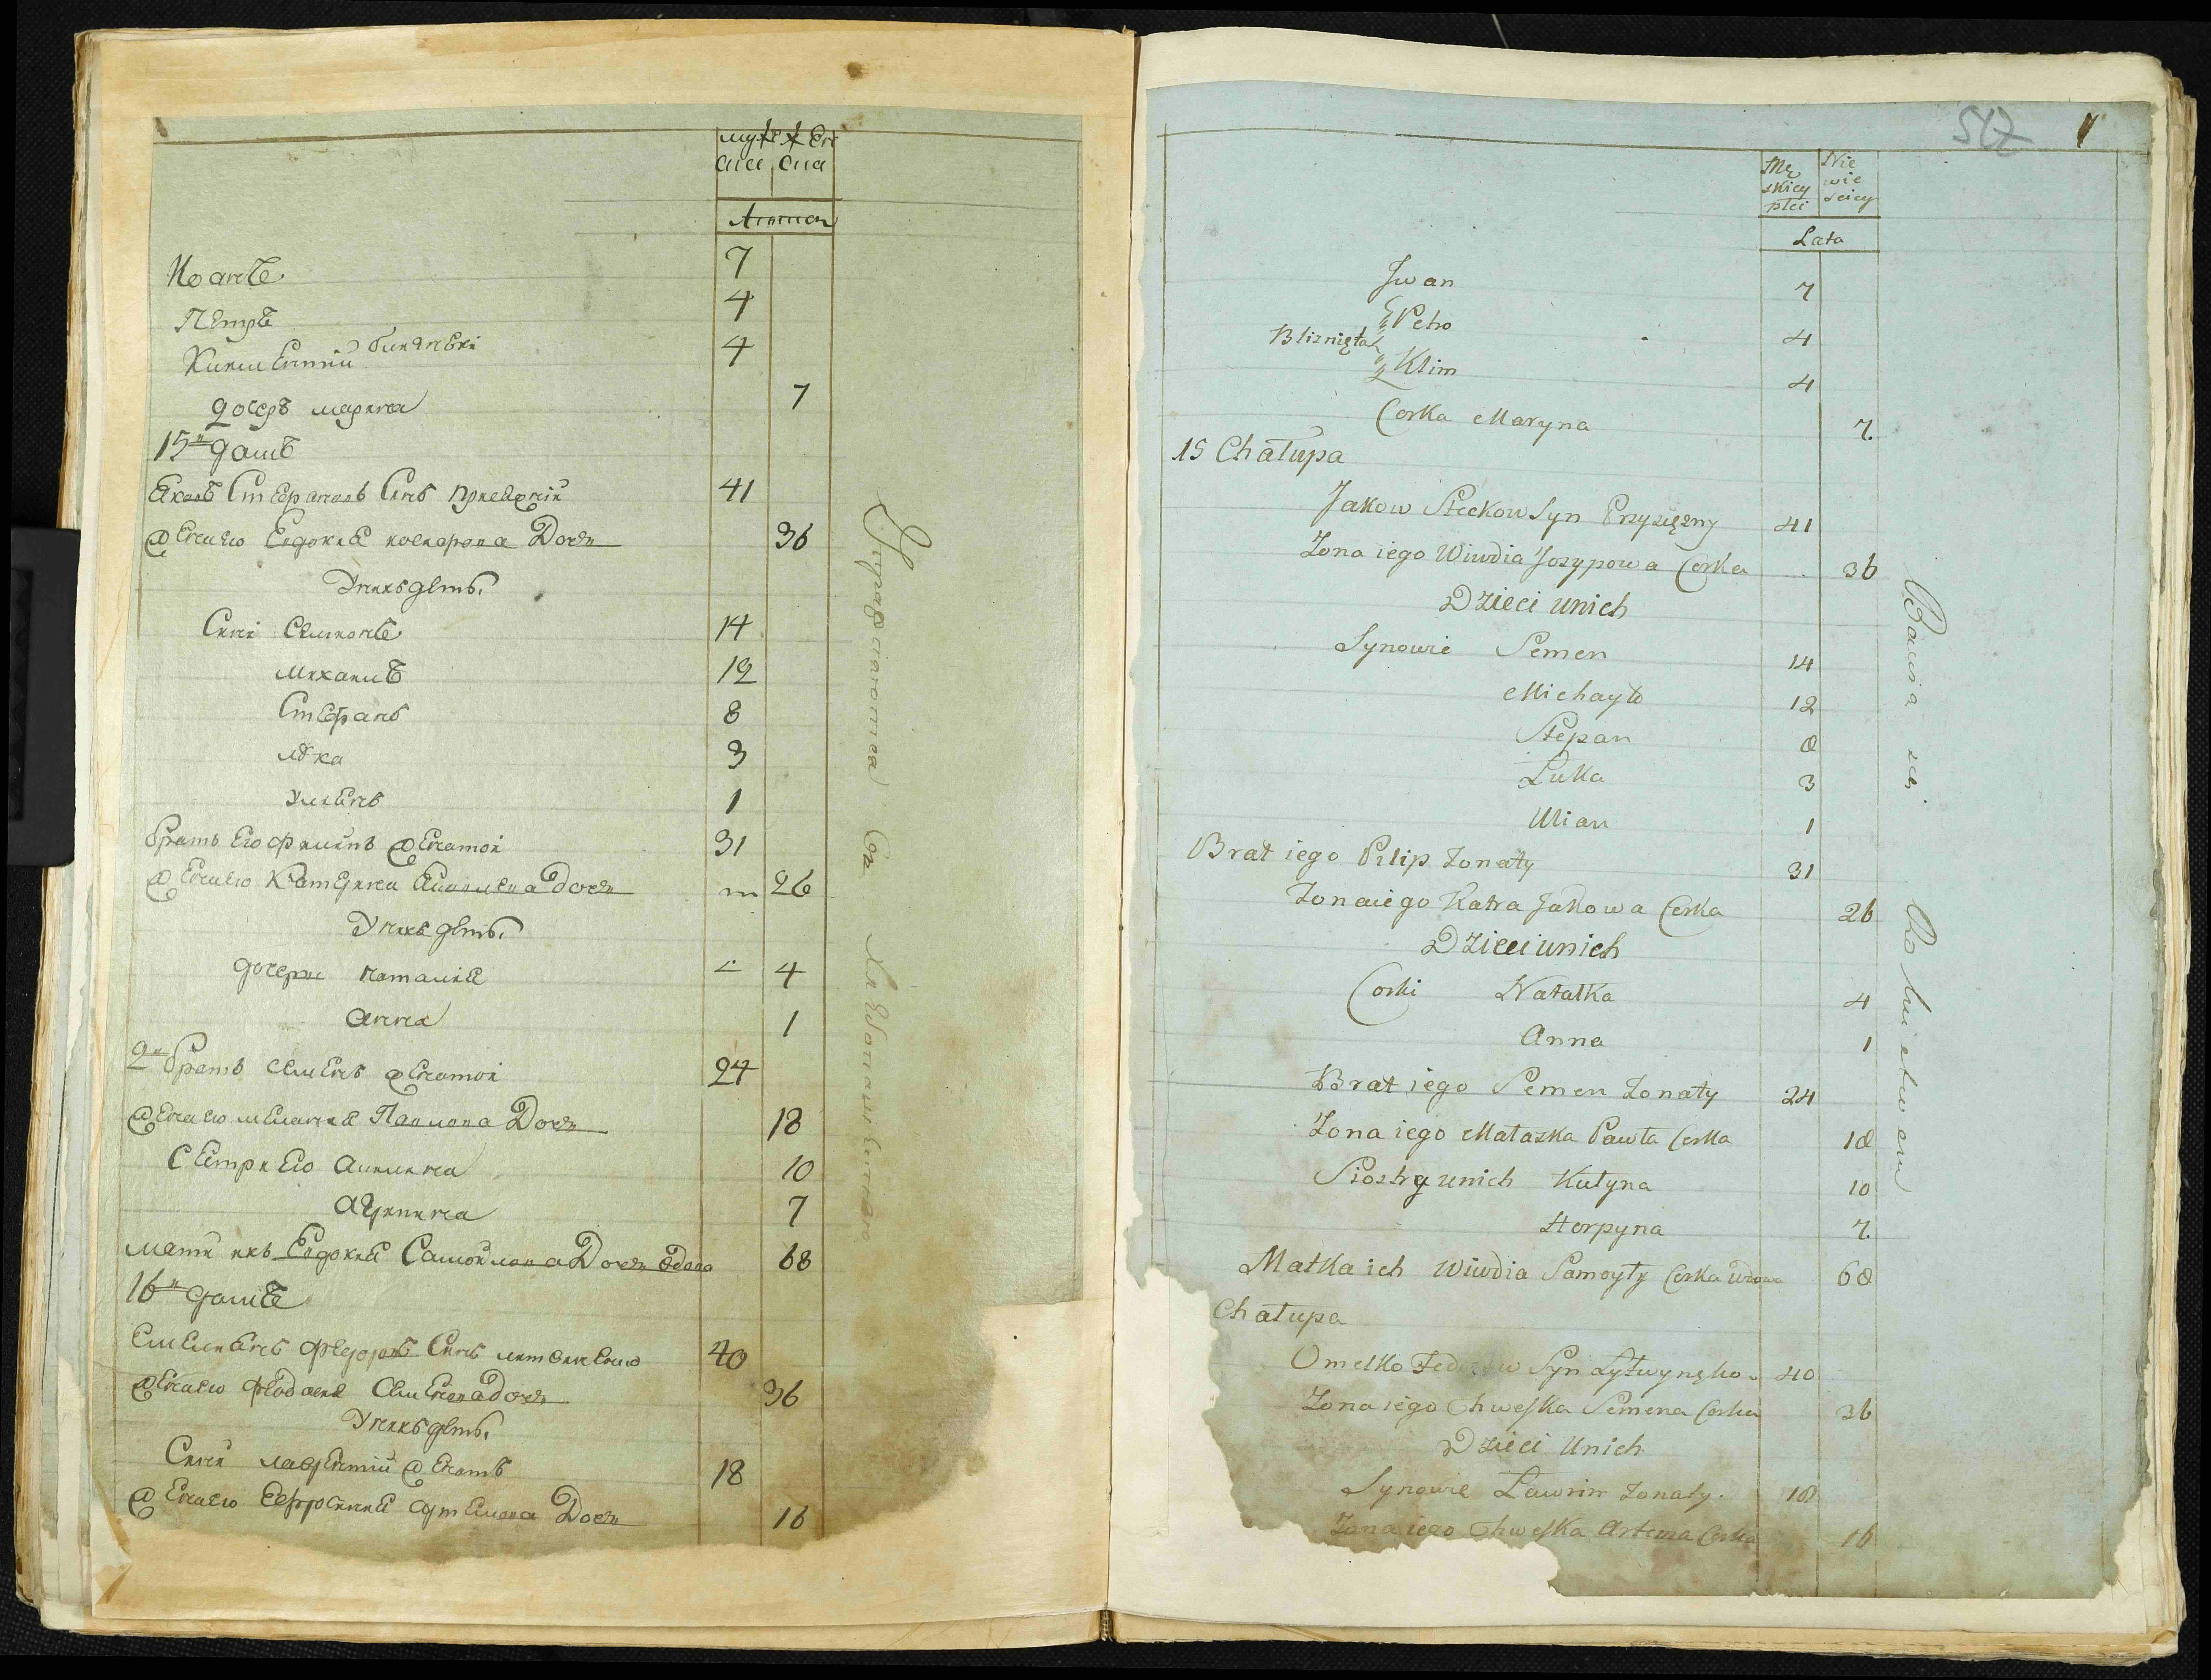 муже жен
ска ска
Летъ
Иоанъ 7
Петръ 4
Климентий близнѣки 4
дочеръ марина 7
15й домъ
Яковъ Стефановъ Синъ присяжній 41
жена его Евдокия иосифова Дочь 36
У нихъ дети
Сини Симионъ 14
михаилъ 12
Стефанъ 8
лука 3
улиенъ 1
братъ его филипъ женатой 31
жена его Катерина Яковлева дочь 26
У нихъ дети
дочери наталия 4
анна 1
2й братъ Симеонъ женатой 24
жена его мелания Павлова Дочь 18
Сестри Его Акилина 10
агрипина 7
мати ихъ Евдокия Самойлова Дочь вдова 68
16й домъ
Емелиянъ федоровъ Синъ литвиненко 40
жена его феодосия Симеонова дочь 36
У нихъ дети
Сини лаврентий женатъ 18
жена его Ефросиния артемова Дочь 16
547
Mę
skiey
płci
Nie
wie
sciey
Lata
Jwan 7
Petro 4
Bliznięta
Klim 4
Corka Maryna 7.
15 Chałupa
Jakow Steckow Syn Przysiężny 41
Zona iego Wiwdia Jozypowa Corka 36
Dzieci unich
Synowie Semen 14
Michayło 12
Stepan 8
Luka 3
Ulian 1
Brat iego Pilip Zonaty 31
Zona iego Katra Jakowa Corka 26
Dzieci unich
Corki Natałka 4
Anna 1
Brat iego Semen Zonaty 24
Zona iego Małaszka Pawła Corka 18
Siostry unich Kulyna 10
Horpyna 7.
Matka ich Wiwdia Samoyły Corka wdowa 68
Chałupa
Omelko Fedorow Syn Lytwynęko 40
Zona iego Chweska Semena Corka 36
Dzieci Unich
Synowie Ławrin Zonaty. 18
Zona iego Chweska Artema Corka 16